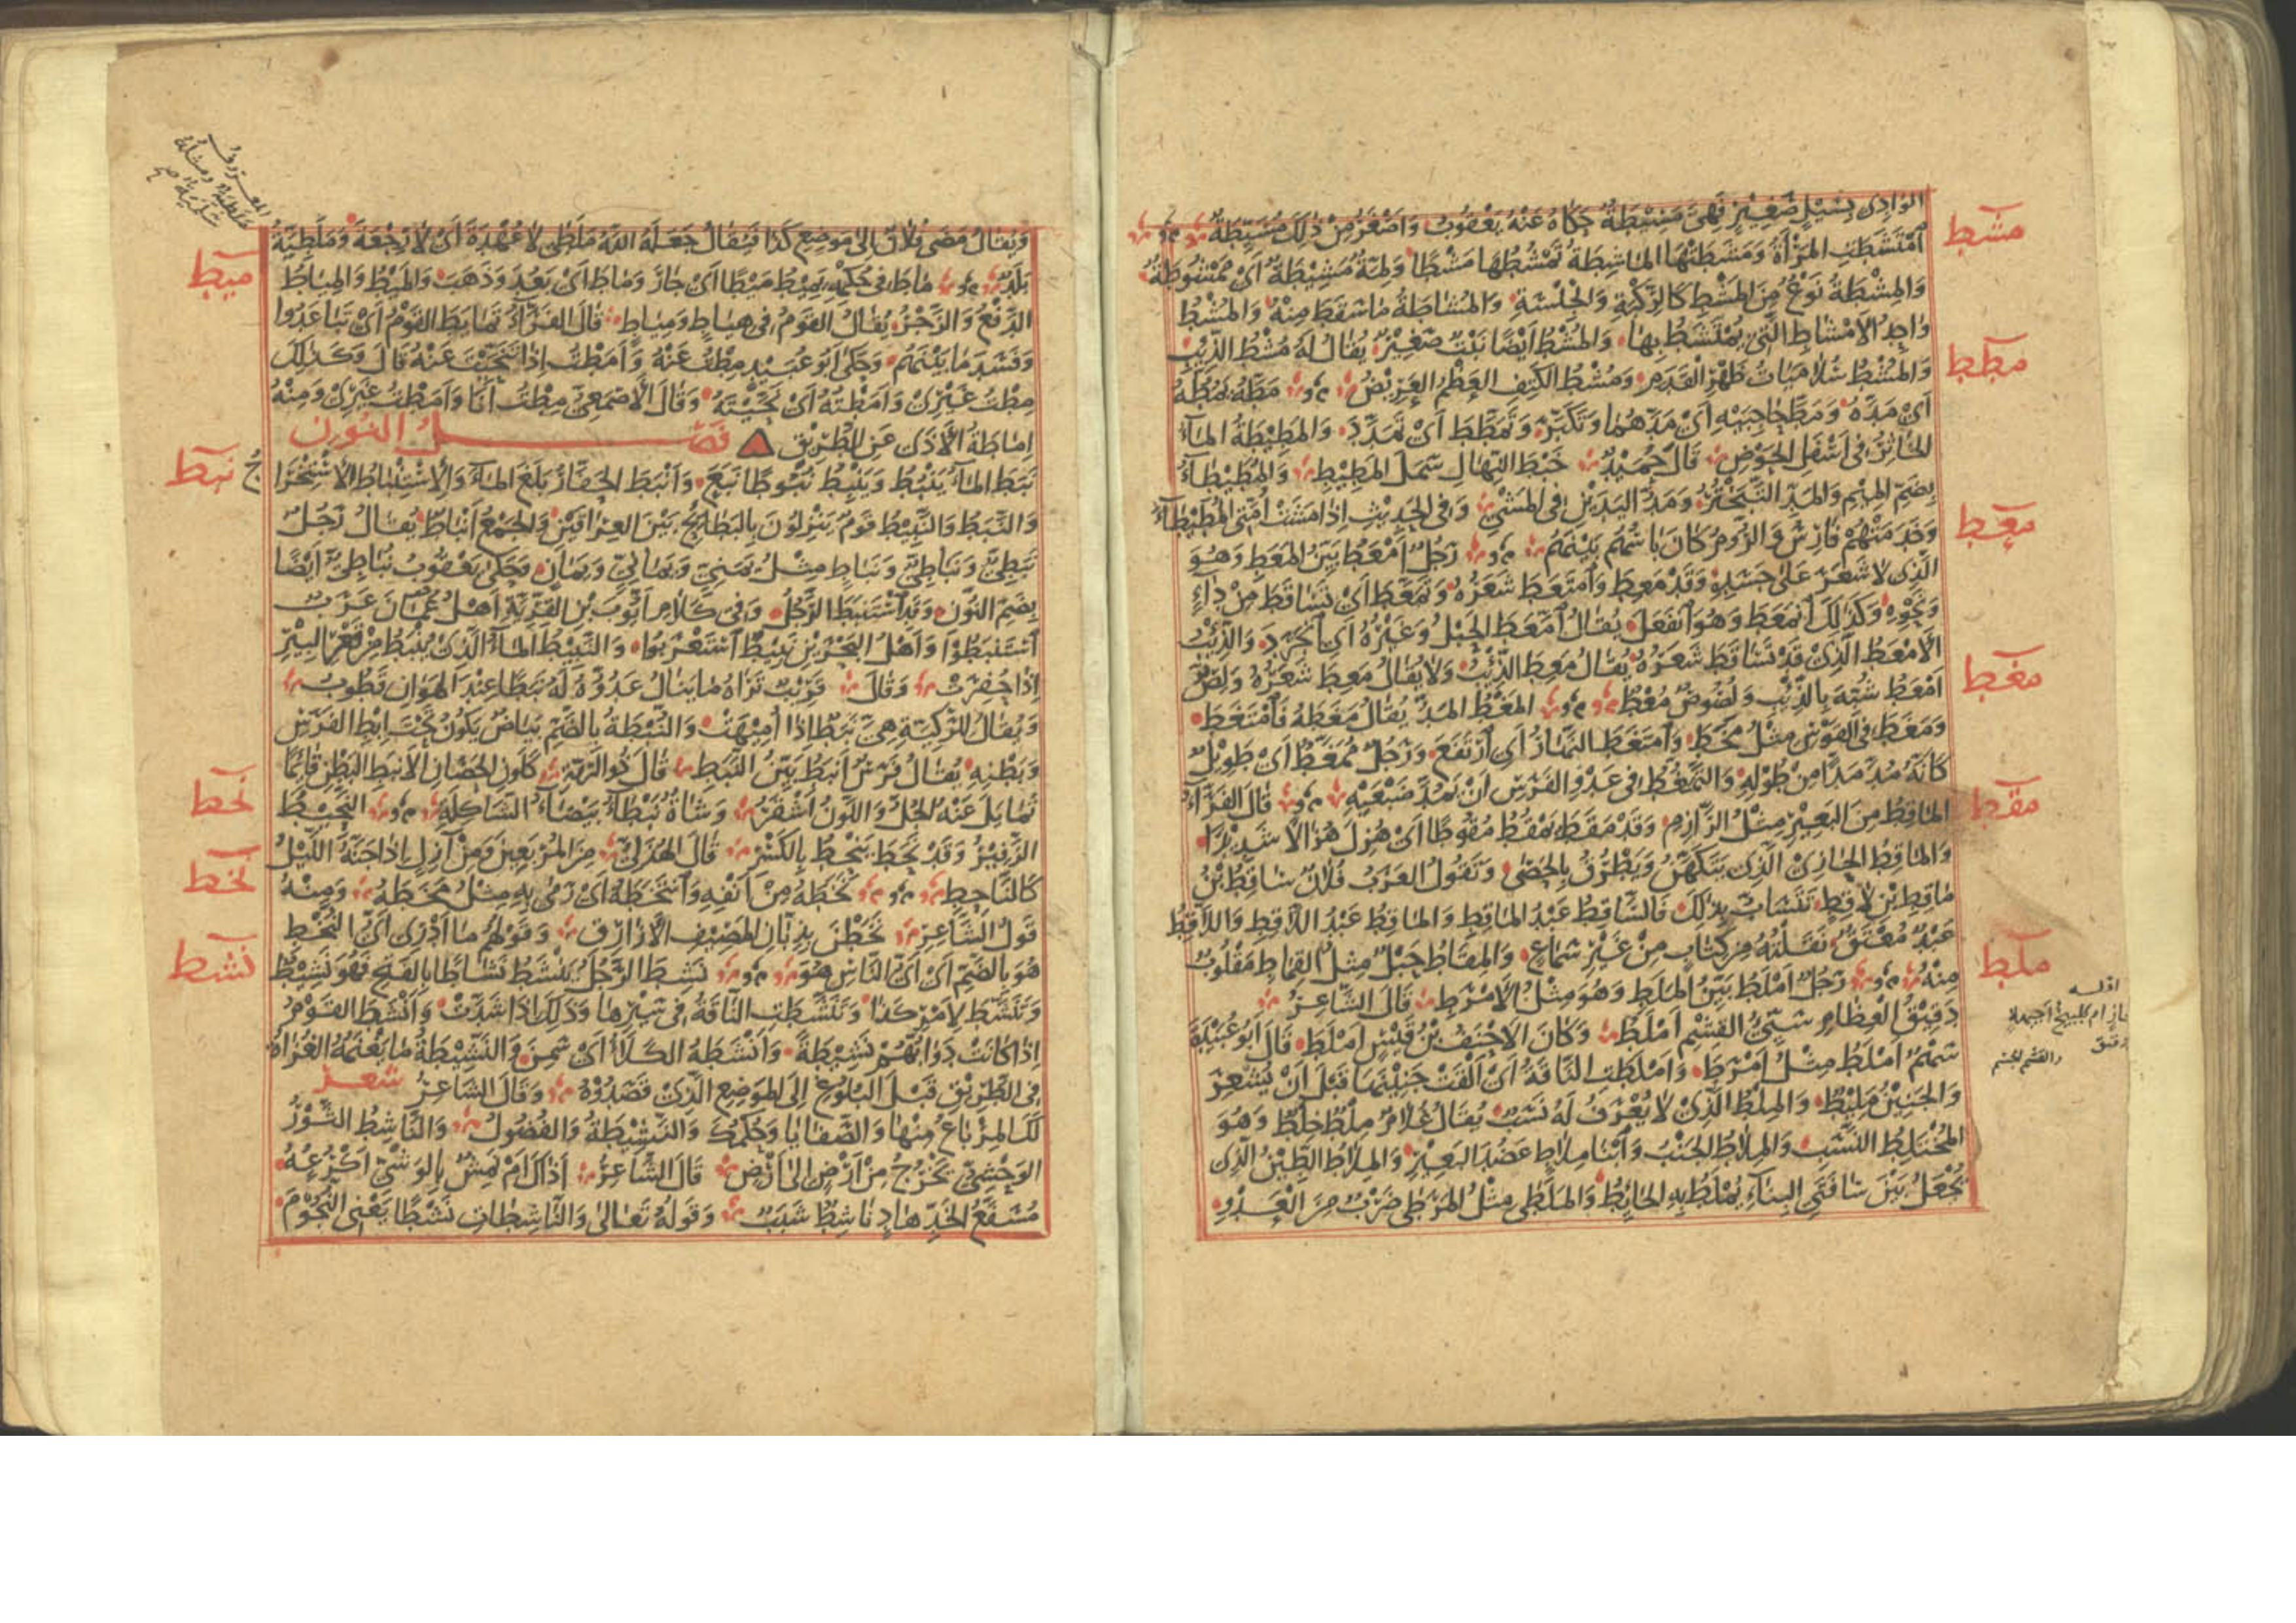 مشط
الوادى بسيل صغير فهى مسيطة حكاه عنه يعقوب واصغر من ذلك مسيطة
امتشطت المرأة ومشطتها الماشطة تمشطها مشطا ولمة مشيطة اى ممشوطة
والمشطة نوع من المشط كالركبة والجلسة والمشاطة ما سقط منه والمشط
واحد الامشاط التى يمتشط بها والمشط ايضا نبت صغير يقال له مشط الذيب
مطط
والمشط سلاميات ظهر القدم ومشط الكتف العظم العريض مطه يمطه
اى مده ومط حاجبيه اى مدهما وتكبر وتمطط اى تمدد والمطيطة الماء
الخاثر فى اسفل الحوض قال حميد خبط النهال سمل المطيط والمطيطاء
بضم الميم والمد التبختر ومد اليدين فى المشى وفى الحديث اذا مشت امتى المطيطاء
معط
وخدمتهم فارس والروم كان باسهم بينهم رجل امعط بين المعط وهو
الذى لا شعر على جسده وقد معط وامتعط شعره وتمعط اى تساقط من داء
ونحوه وكذلك انمعط وهو انفعل يقال امعط الحبل وغيره اى انجرد والذيب
الامعط الذى قد تساقط شعره يقال معط الذئب ولا يقال معط شعره ولص
مغط
امعط شبه بالذيب ولصوص معط المغط المد يقال مغطه فامتغط
ومغط فى القوس مثل مخط وامتغط النهار اى ارتفع ورجل ممغط اى طويل
كانه مد مدا من طوله والتمغط فى عدو الفرس ان يمد ضبعيه قال الفراء
مقط
الماقط من البعير مثل الرازم وقد مقط يمقط مقوطا اى هزل هزالا شديدا
والماقط الحازى الذى يتكهن ويطرق بالحصى وتقول العرب فلان ساقط بن
ماقط بن لاقط تتساب بذلك فالساقط عبد الماقط والماقط عبد اللاقط واللاقط
عبد معتق نقلته من كتاب من غير سماع والمقاط حبل مثل القماط مقلوب
ملط
منه رجل املط بين الملط وهو مثل الامرط قال الشاعر
دقيق العظام سيئ القشم املط وكان الاحنف بن قيس املط قال ابو عبيدة
سهم املط مثل امرط واملطت الناقة اى القت جنينها قبل ان يشعر
والجنين مليط والملط الذى لا يعرف له نسب يقال غلام ملط خلط وهو
المختلط النسب والملاط الجنب وابنا ملاط عضد البعير والملاط الطين الذى
يجعل بين سافتى البناء يملط به الحايط والملطى مثل المرطى ضرب من العدو
ويقال مضى فلان الى موضع كذا فيقال جعله الله ملطى لا عهدة اى لا رجعة وملطية
ميط
بلد ماط فى حكمه يميط ميطا اى جار وماط اى بعد وذهب والميط والمياط
الدفع والزجر يقال القوم فى هياط ومياط قال الفراء تمايط القوم اى تباعدوا
وفسد ما بينهم وحكى ابو عبيد مطت عنه وامطت اذا تنحيت عنه قال وكذلك
مطت غيرى وامطته اى نحيته وقال الاصمعى مطت انا وامطت غيرى ومنه
اماطة الاذى عن الطريق فصل النون
نبط
نبط الماء ينبط وينبط نبوطا نبع وانبط الحفار بلغ الماء والاستنباط الاستخرا ج
والنبط والنبيط قوم ينزلون بالبطايح بين العراقين والجمع انباط يقال رجل
نبطى ونباطى ونباط مثل يمنى ويمانى ويمان وحكى يعقوب نباطى ايضا
بضم النون وقد استنبط الرجل وفى كلام ايوب بن القرية اهل عمان عرب
استنبطوا واهل البحرين نبيط استعربوا والنبيط الماء الذى ينبط من قعر البير
اذا حفرت وقال قريب ثراه ما ينال عدوه له نبطا عند الهوان قطوب
ويقال للركية هى نبط اذا اميهت والنبطة بالضم بياض يكون تحت ابط الفرس
وبطنه يقال فرس انبط بين النبط قال ذو الرمة كلون الحصان الانبط البطن قائما
نحط
تمايل عنه الجل واللون اشقر وشاة نبطاء بيضاء الشاكلة النحيط
الزفير وقد نحط ينحط بالكسر قال الهذلى من المربعين ومن آزل اذا جنه الليل
نخط
كالناحط نخطه من انفه وانتخطه اى رمى به مثل مخطه ومنه
قول الشاعر نخطن بذبان المصيف الازارق وقولهم ما ادرى اى النخط
نشط
هو بالضم اى اى الناس هو نشط الرجل ينشط نشاطا بالفتح فهو نشيط
وتنشط لامر كذا وتنشطت الناقة فى سيرها وذلك اذا شدت وانشط القوم
اذا كانت دوابهم نشيطة وانشطه الكلأ اى سمن والنشيطة ما يغنمه الغزاة
فى الطريق قبل البلوغ الى الموضع الذى قصدوه وقال الشاعر شعر
لك المرباع منها والصفايا وحكمك والنشيطة والفضول والناشط الثور
الوحشى يخرج من ارض الى ارض قال الشاعر اذاك ام نمش بالوشى اكرعه
مسفع الخد هاد ناشط شبب وقوله تعالى والناشطات نشطا يعنى النجوم